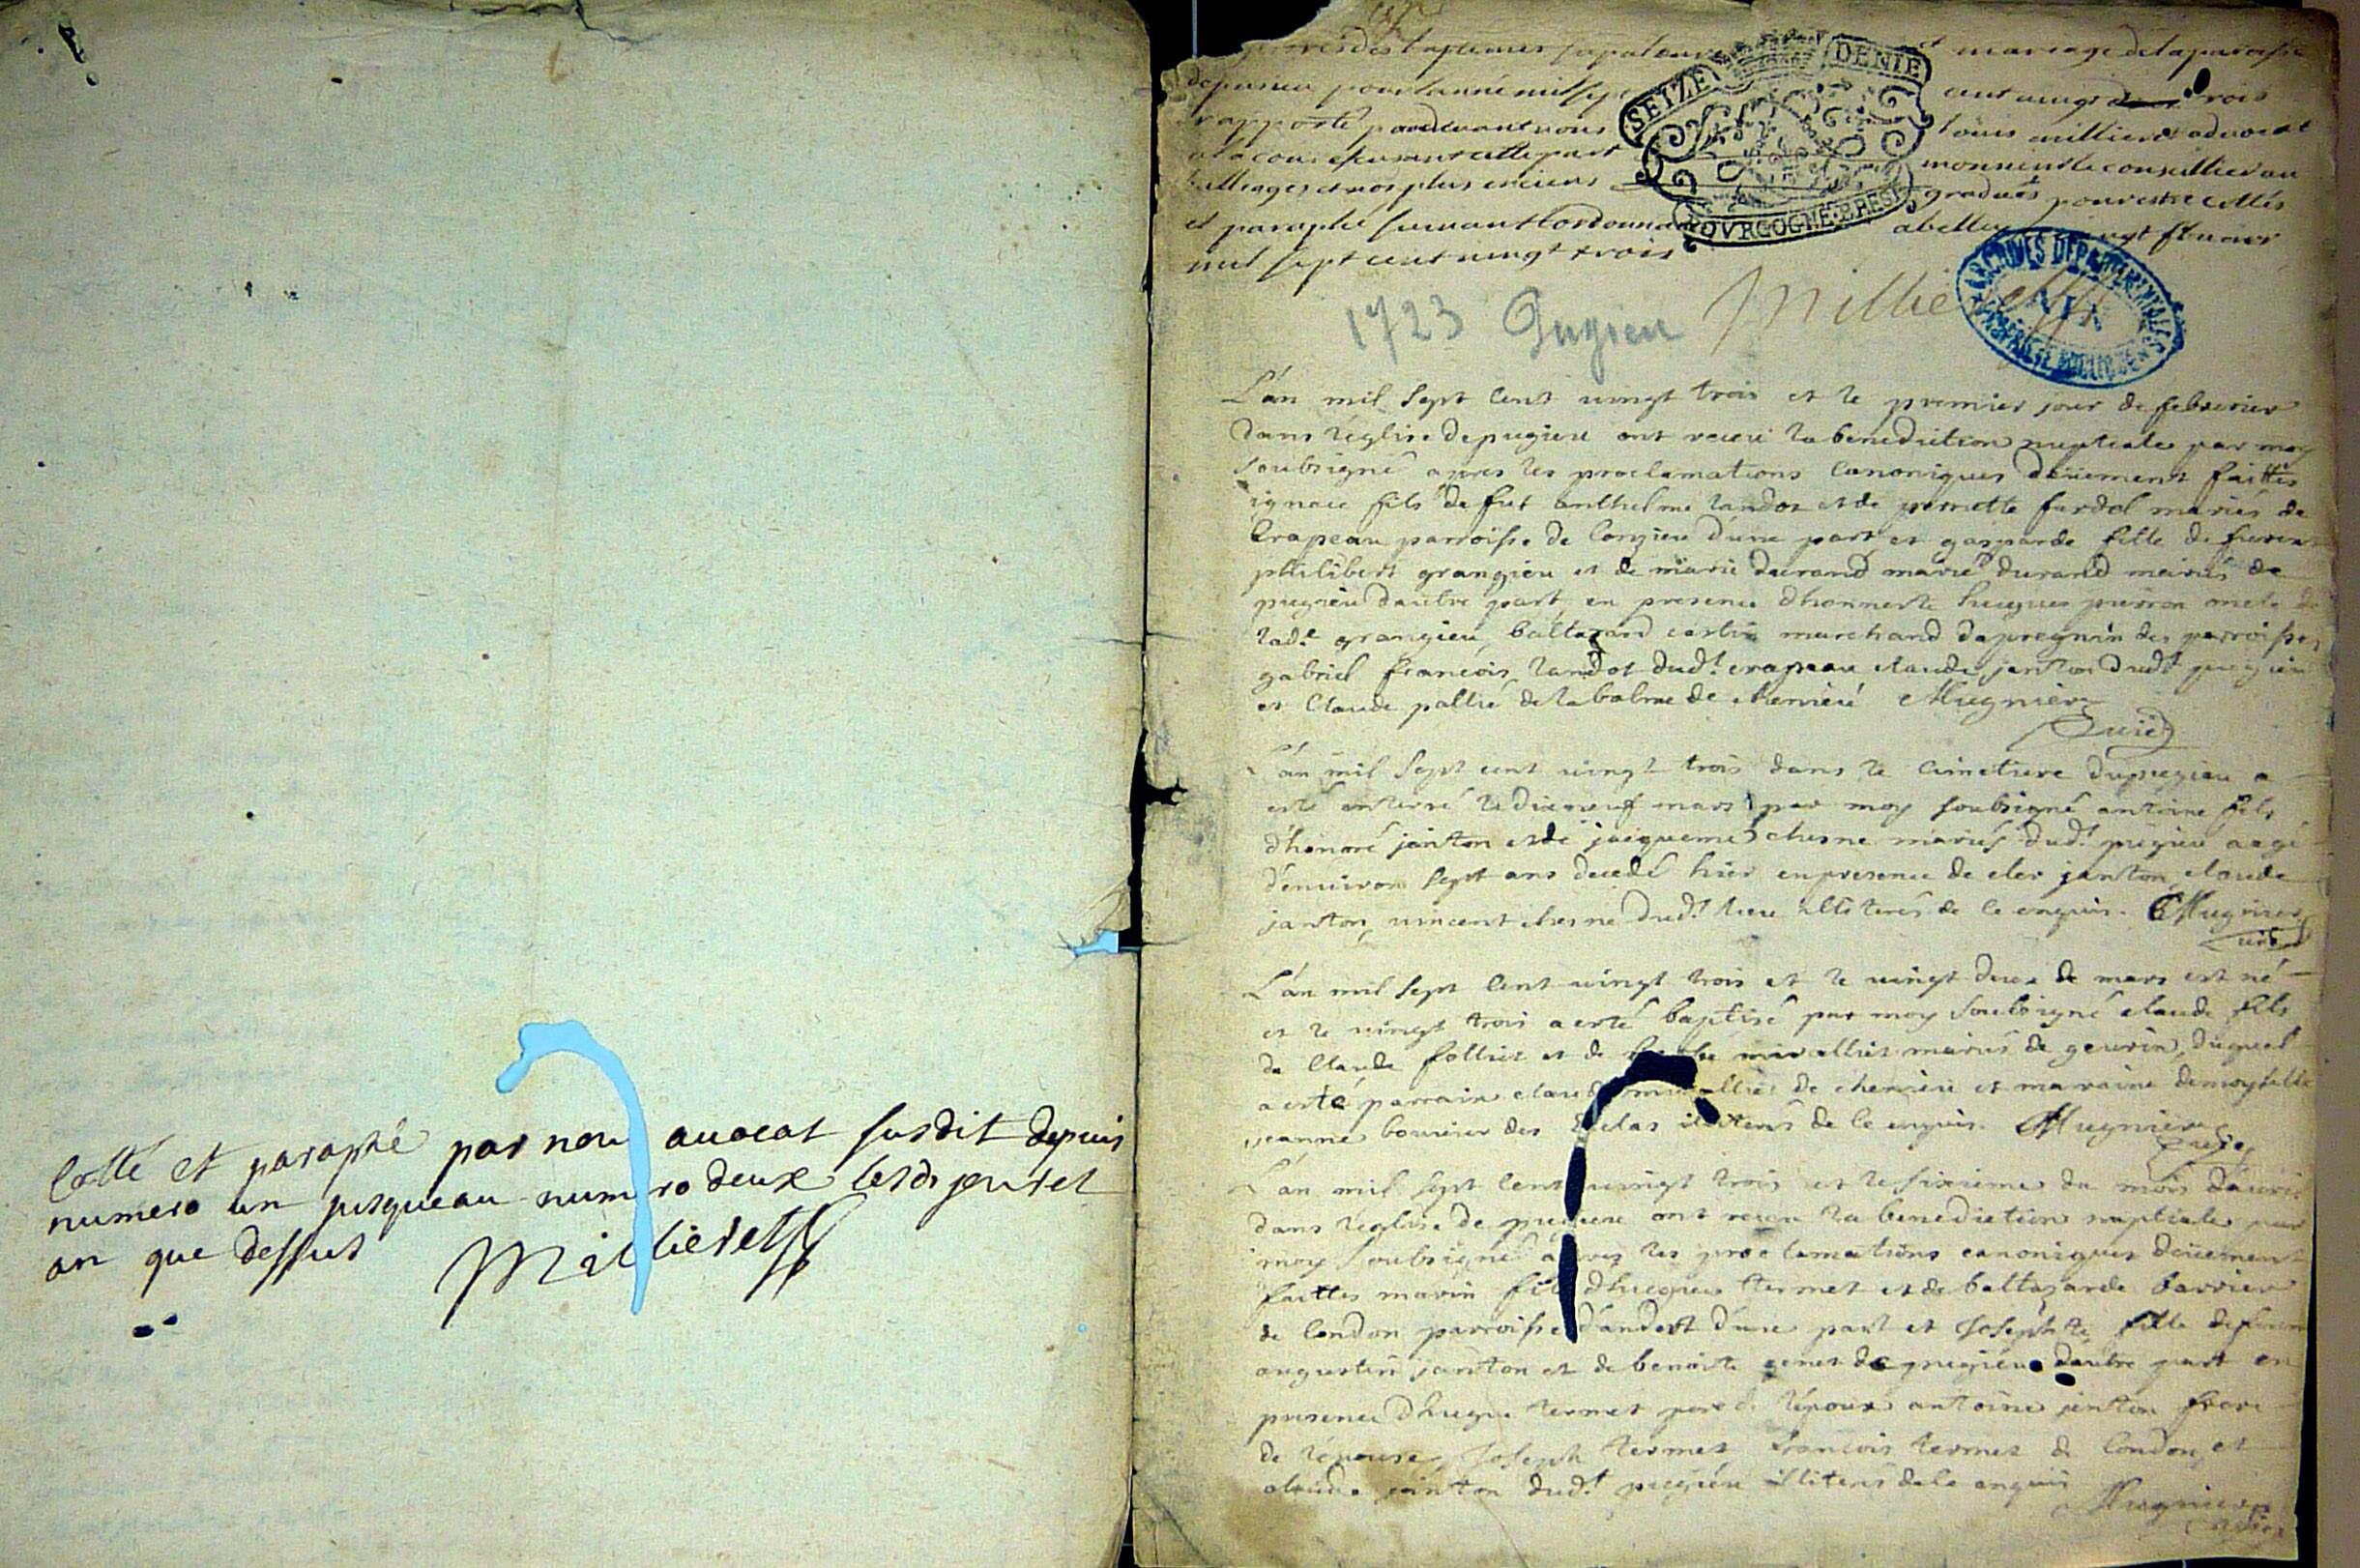 Cotté et paraphé par nous avocat susdit depuis
numero un jusqueau numero deux lesdt jour et
an que dessus Millieret
des baptemes sepulture et mariage de la paroisse
de pugieu pour lanné mil sept cent vingt trois
rapporté pardevant nous louis millieret advocat
a la cour exersant cette part monsieur le conseillier au
balliages et nos plus enciens gradués pour estre cottés
et paraphé suivant lordonna a belley vingt fevrier
mil sept cent vingt trois
SEIZE DENIE
BOVRGOGNE·BRESSE
ARCHIVES DEPARTEMENTALES
AIN
1723 Pugieu Millieret
L'an mil sept cent vingt trois et le premier jour de febvrier
dans l'église de pugieu ont receu la benediction nuptiale par moy
soubsigné apres les proclamations canoniques düement faittes
ignace fils de feu anthelme landot et de pernette fardel mariés de
Crapeau parroisse de Conzieu d'une part et gasparde fille de
philibert grangieu et de marie durand marié durand mariés de
pugieu dautre part, en presence dhonneste hugues oncle de
lade grangieu, baltazard marchand de pregnin des parroisses
gabriel francois landot dudt crapeau claude janton dudt pugieu
et Claude pallié de la balme de Mugnier
Curé
L'an mil sept cent vingt trois dans le cimetiere du pugieu a
esté enterré le dixneuf mars par moy soubsigné antoine fils
d'honoré janton et de jacqueme chesne mariés dudt pugieu aagé
d'environ sept ans decedé hier en presence de janton, claude
janton, vincent chesne dudt lieu illiterés de ce enquis. Mugnier
curé
L'an mil sept cent vingt trois et le vingt deux de mars est né
et le vingt trois a esté baptisé par moy soubsigné claude fils
de Claude follict et de mariés de duquel
a esté parrain claude de et marraine demoyselle
jeanne des illiterés de ce enquis. Mugnier
Curé
L'an mil sept cent vingt trois et le sixieme du mois d'avril
dans l'eglise de pugieu ont receu la benediction nuptiale par
moy soubsigné apres les proclamations canoniques düement
faittes marin fils dhugues termet et de baltazarde barrier
de London parroisse d'andert d'une part et Josephte fille de
augustin janton et de benoiste genet de pugieu dautre part en
presence dhugue termet pere de l'epoux antoine janton frere
de l'epouse, Joseph termet francois termet de London et
claude janton dudt pugieu illiterés de ce enquis
Mugnier
curé